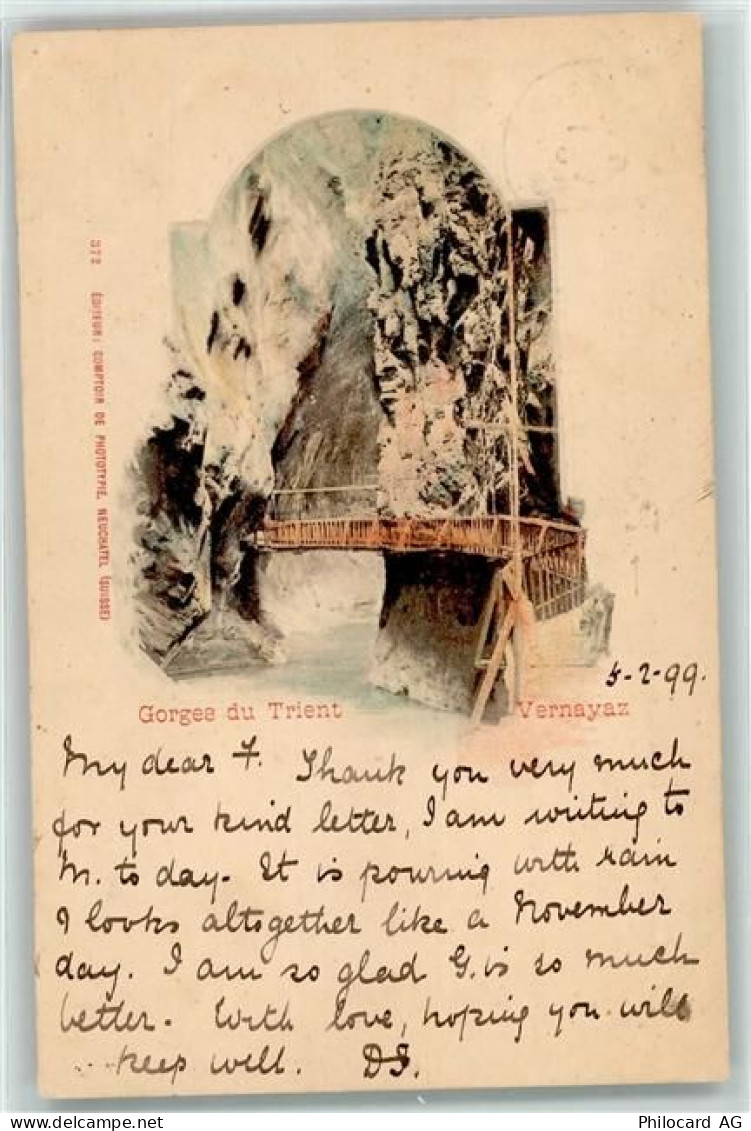 372 EDITEUR: COMPTOIR DE PHOTOTYPIE, NEUCHATEL (SUISSE)
Gorges du Trient Vernayaz
5-2-99.
My dear F. Thank you very much
for your kind letter, I am writing to
M. to day. It is pouring with rain
& looks altogether like a November
day. I am so glad G. is so much
better. With love, hoping you will
keep well.
www.delcampe.net
Philocard AG